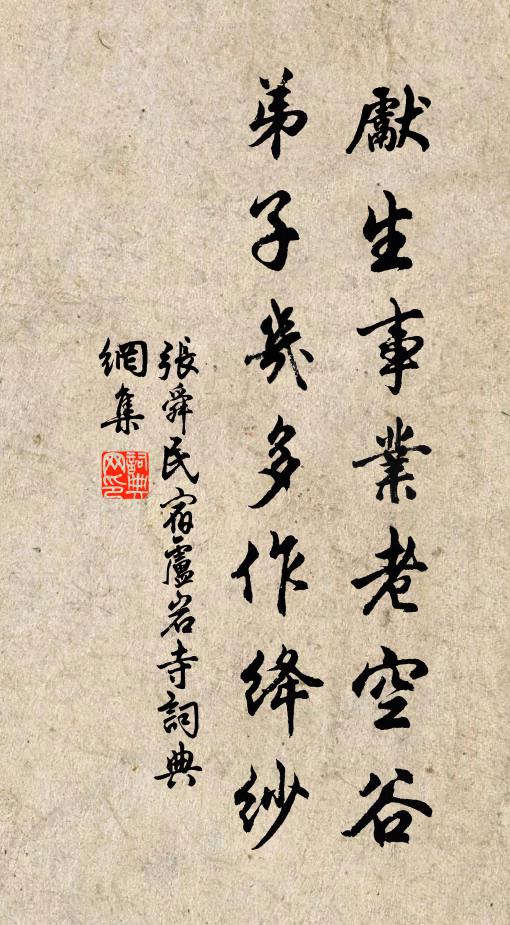 獻生事業老空谷
弟子幾多作絳紗
張舜民宿盧岩寺詞典
網集
詞典
网印